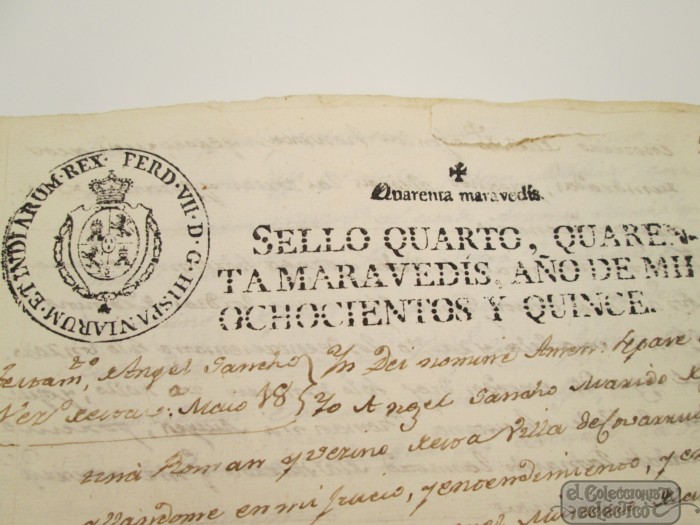 FERD·VII·D·G·HISPANIARUM·ET INDIARUM·REX·
Quarenta maravedis.
SELLO QUARTO, QUAREN-
TA MARAVEDÍS, AÑO DE MIL
OCHOCIENTOS Y QUINCE.
Angel Sancho
Maio 18
In Dei nomine Amen. Sepase
Yo Angel Sancho Marido
Roman y vezino Villa de Covarru
en mi Juicio, y entendimiento, y en
el Coleccionista
ecléctico